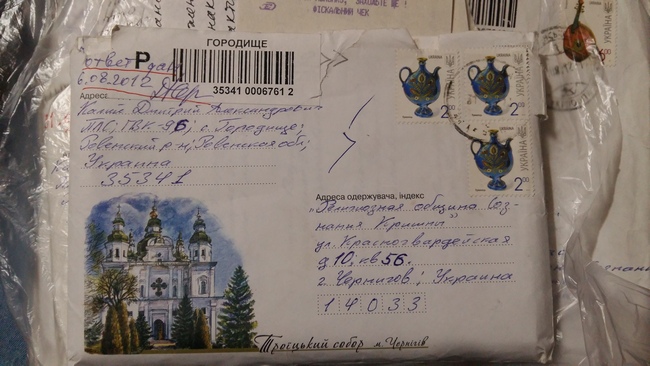 ФІСКАЛЬНИЙ ЧЕК
ГОРОДИЩЕ
R
35341 0006761 2
ответ дан
6.08.2012
Адрес
Дмитрий Александрович
96, с. Городище,
Ровенский р-н, Ровенская обл,
Украина
35341
УКРАЇНА
2.00
УКРАЇНА
2.00
УКРАЇНА
2.00
Адреса одержувача, індекс
„Религиозная община Соз-
нания Кришны"
ул. Красногвардейская
д 10, кв 56.
г. Чернигов, Украина
14033
Троїцький собор м. Чернігів
УКРАЇНА